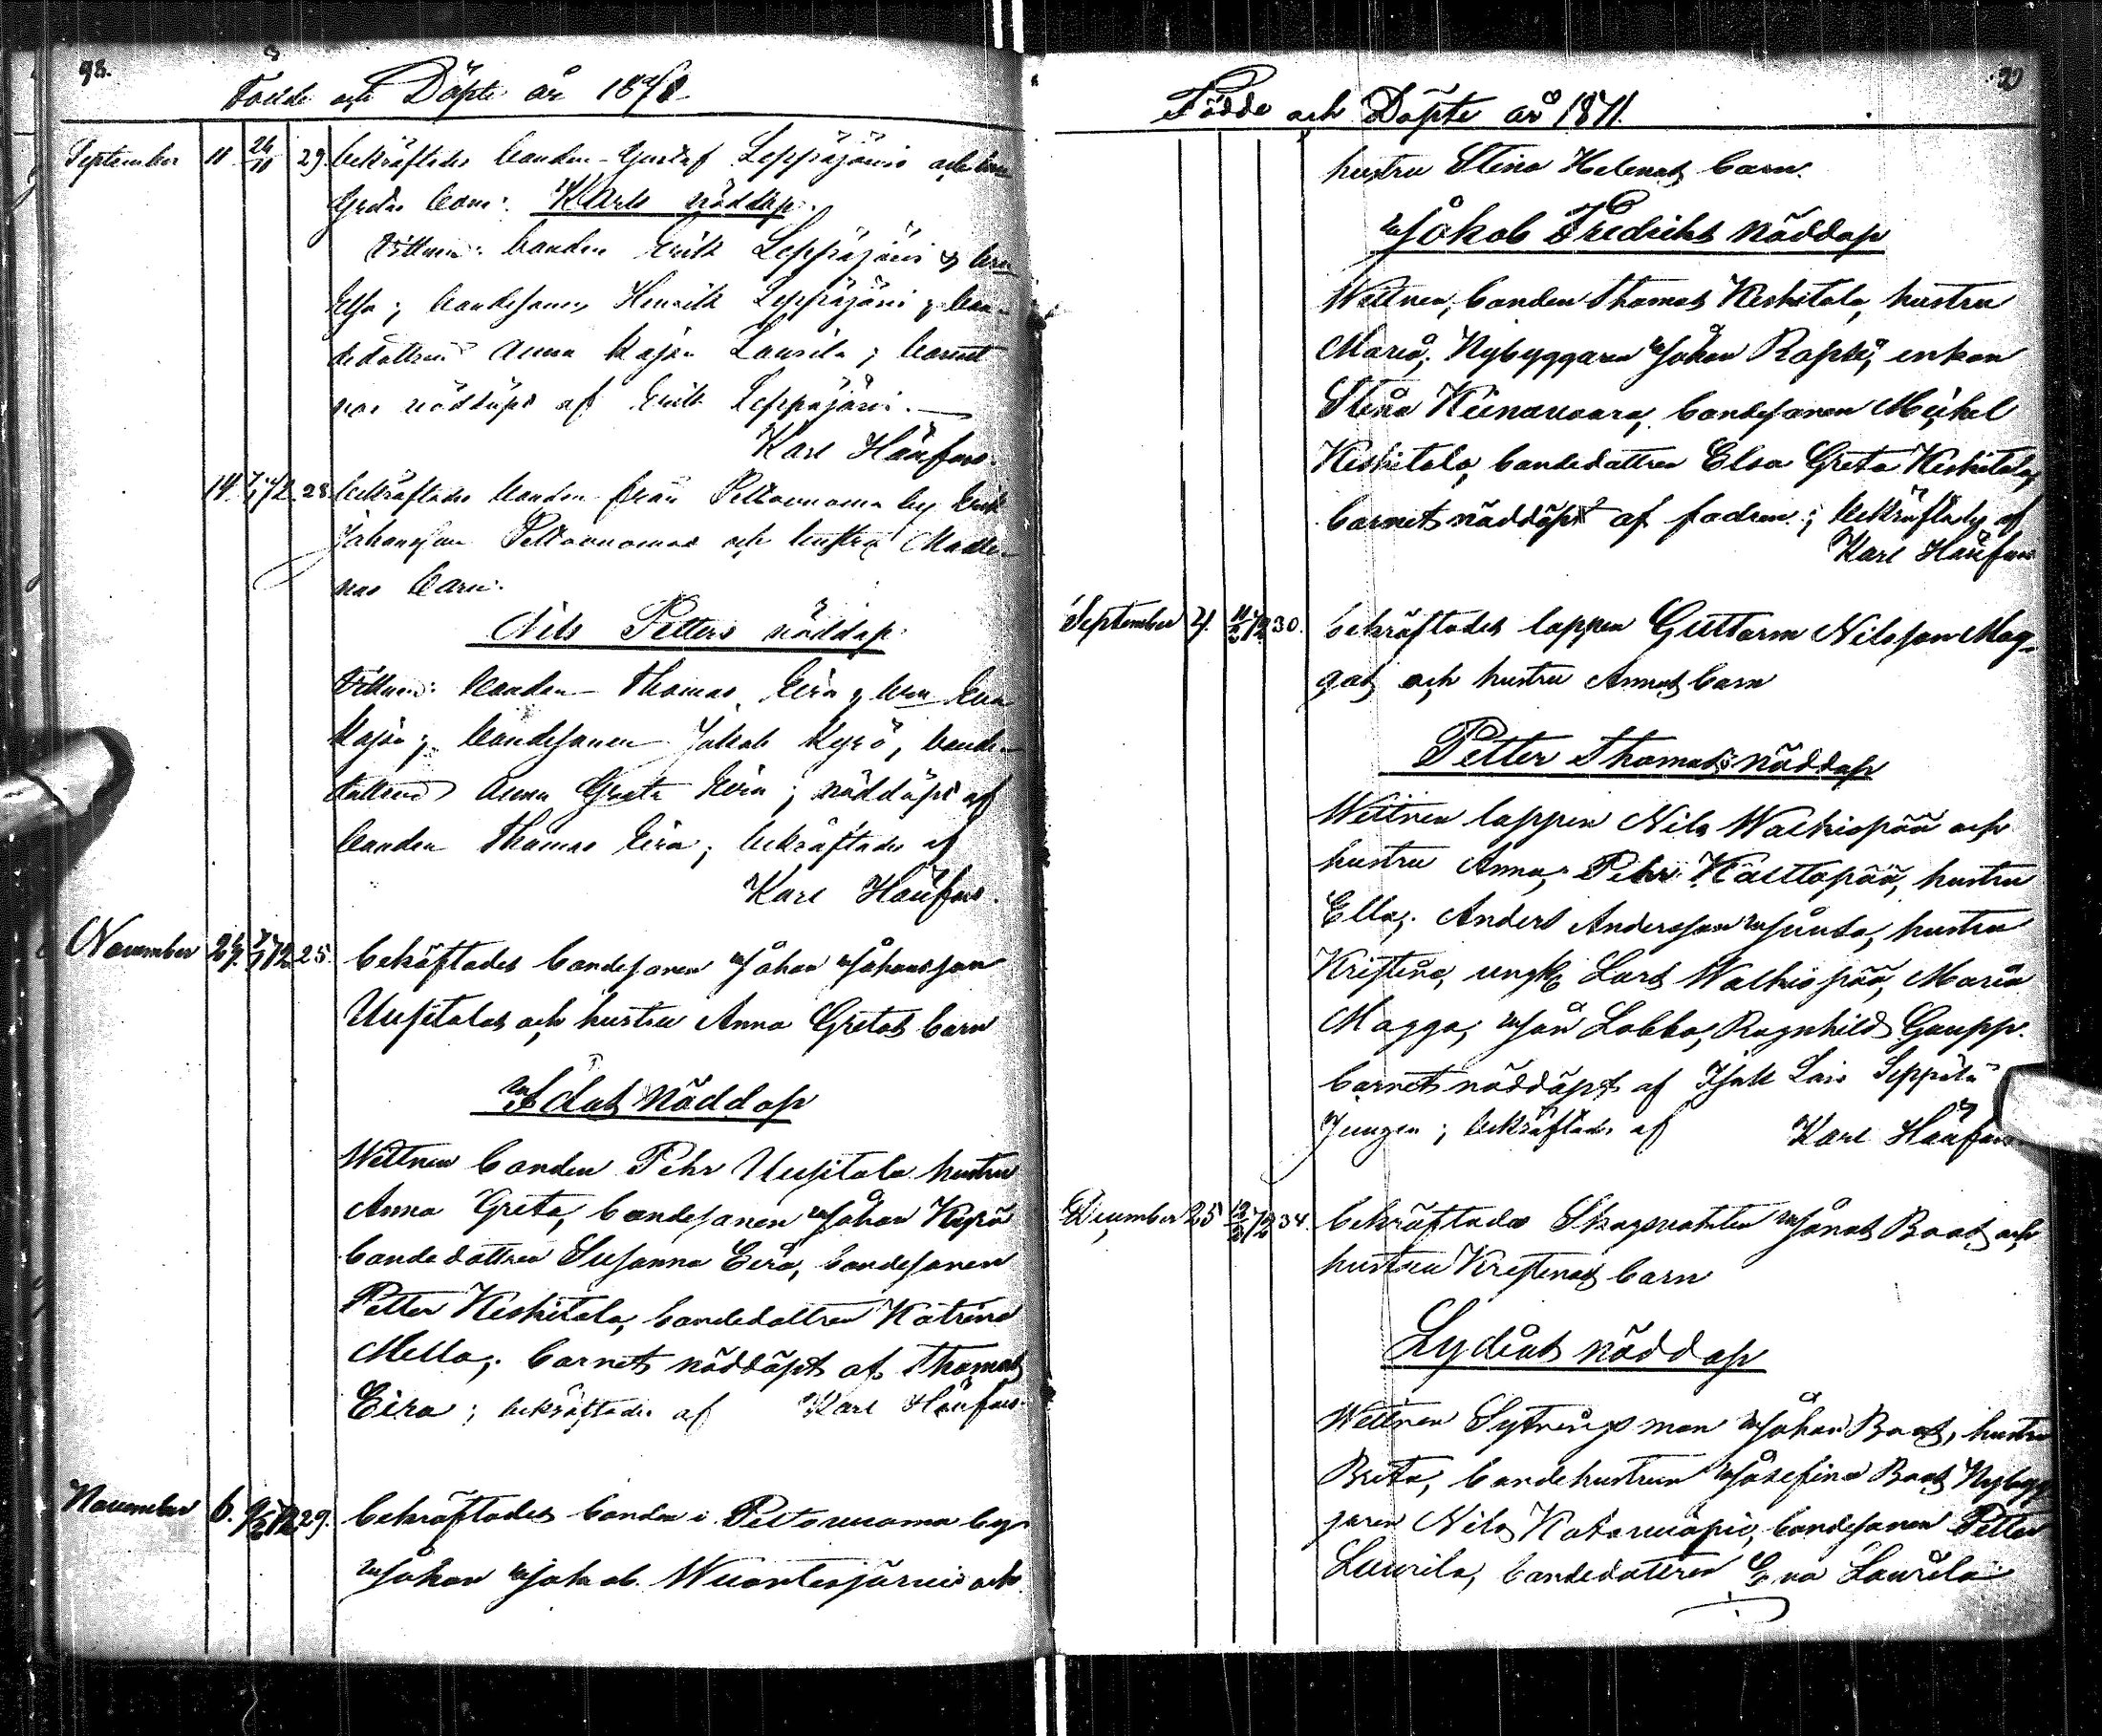 98.
Födde och Döpte år 1871
September 11 24/11 29. bekräftades bonden Gustaf Leppäjärvis och hru
Gretas barn: Karls nöddop.
Vittnen: bonden Erik Leppäjärvi & hru
Elsa; bondesonen Henrik Leppäjärvi & bon-
dedottren Anna Kajsa Laurila; barnet
var nöddöpt af Erik Leppäjärvi.
Karl Hänfors.
14. 72 28 bekräftades bonden från Peltovuoma by Erik
Johansson Peltovuomas och hustru Madle-
nas barn.
Nils Petters nöddop.
Vittnen: bonden Thomas Eira & hru Eva
Kajsa; bondesonen Jakob Kyrö, bonde-
dottren Anna Greta Eira; nöddöpt af
bonden Thomas Eira; bekräftades af
Karl Hänfors.
November 24. 72 25. bekäftades bondesonen Johan Johansson
Uusitalos och hustru Anna Gretas barn
Idas Nöddop
Wittnen bonden Pehr Uusitalo hustru
Anna Greta, bondesonen Johan Kyrö
bondedottren Susanna Eira, bondesonen
Petter Keskitalo, bondedottren Katrina
Mella; barnet nöddöpt af Thomas
Eira; bekräftades af Karl Hänfors.
November 6. 72 29. bekräftades bonden i Peltovuoma by
Johan Jakob Wuontisjärvis och
Födde och Döpte år 1871.
hustru Stina Helenas barn.
Jakob Fredriks Nöddop
Wittnen, bonden Thomas Keskitalo, hustru
Maria; Nybyggaren Johan Rapti, enkan
Stina Kiinavaara, bondesonen Mickel
Keskitalo, bondedottren Elsa Greta Keskitalo,
barnet nöddöpt af fadren; bekräftades af
Karl Hänfors
September 4. 11/2 72 30. bekräftades lappen Guttorm Nilsson Mag-
gas och hustru Annas barn
Petter Thomas's nöddop
Wittnen lappen Nils Walkiapää och
hustru Anna, Pehr Kalttopää, hustru
Ella; Anders Andersson Juuso, hustru
Kristina, ungk Lars Walkiapää, Maria
Magga, Jon Labba, Ragnhild Gaupp.
barnet nöddöpt af Isak Lars Seppälä
Juugen; bekräftades af Karl Hänfors
December 25 12/2 72 34. bekräftades Skogsvakten Jonas Baas och
hustru Kristinas barn
Lydias nöddop
Wittnen Sytningsman Johan Baas, hustru
Brita, bondehustrun Josefina Baas Nybyg
garen Nils Kotavuopio, bondesonen Petter
Laurila, bondedottren Eva Laurila